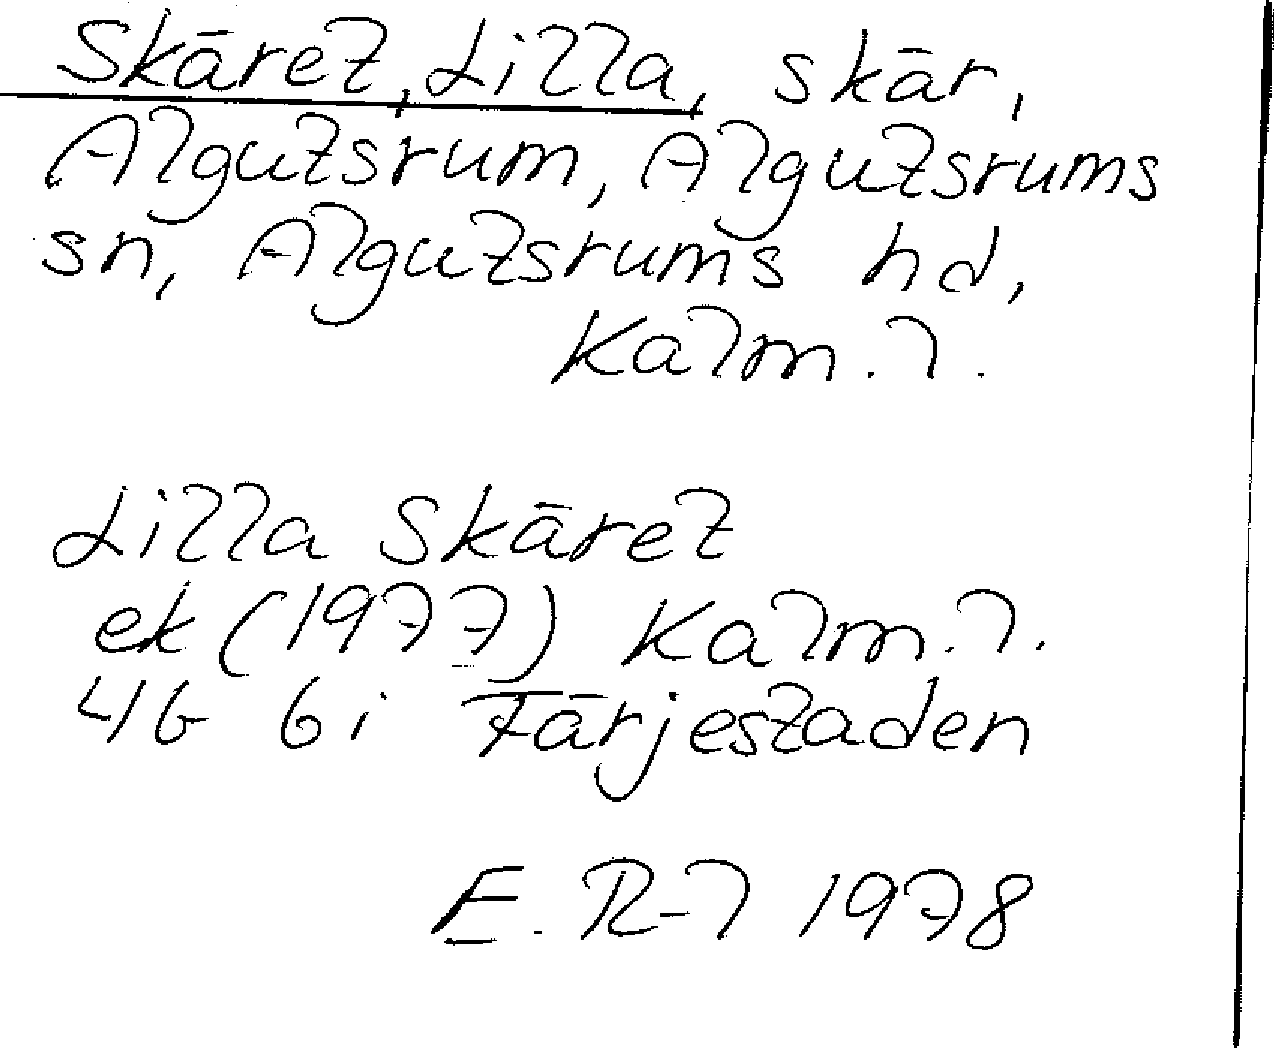 Skäret, Lilla, skär,
Algutsrum, Algutsrums
sn, Algutsrums hd,
Kalm. l.
Lilla Skäret
ek (1977) Kalm. l.
4G 6i Färjestaden
E. R-l 1978